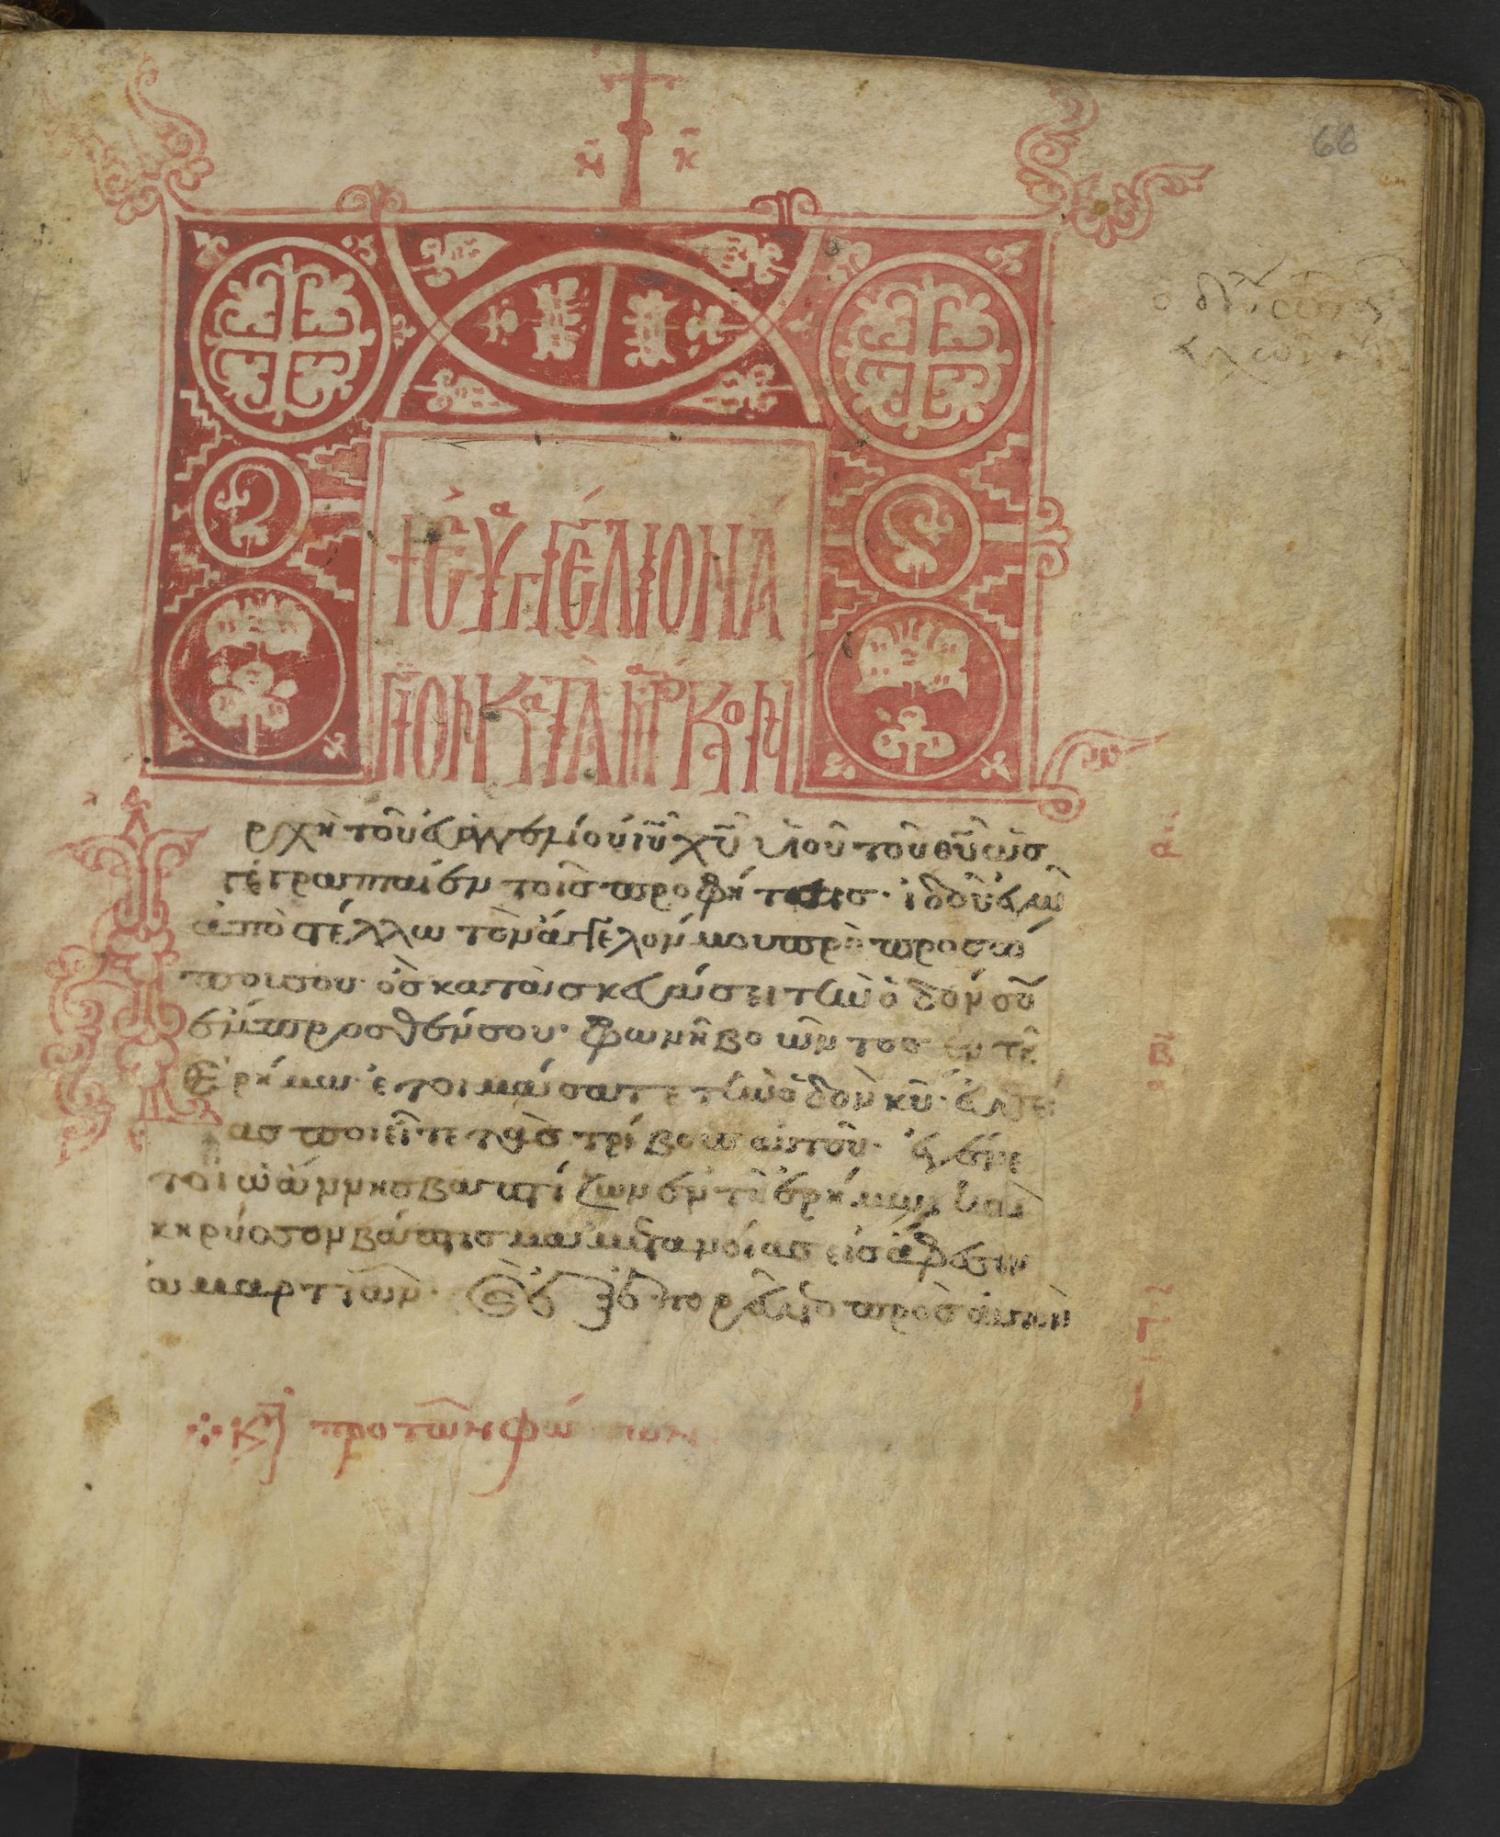 66
+ εὐαγγέλιον ἅ
γιον κατὰ μάρκον
ρχὴ τοῦ εὐαγγελίου ιῦ χῦ υἱοῦ τοῦ θῦ ὡς
γέγραπται ἐν τοῖς προφήταις· ἰδοὺ ἐγὼ
ἀποστέλλω τὸν ἄγγελόν μου πρὸ προσώ
που σου· ὃς κατασκευάσει τὴν ὁδόν σου
ἔμπροσθέν σου· φωνὴ βοῶντος ἐν τῇ
ἐρήμω· ἑτοιμάσατε τὴν ὁδὸν κῦ· εὐθεί
ας ποιεῖτε τὰς τρίβους αὐτοῦ· ἐγένε
το ἰωάννης βαπτίζων ἐν τῇ ἐρήμω καὶ
κηρύσσον βάπτισμα μετανοίας εἰς ἄφεσιν
ἁμαρτιῶν· ἐξεπορεύετο πρὸς αὐτὸν
α
β
Γ
κυ προ τῶν φώτων